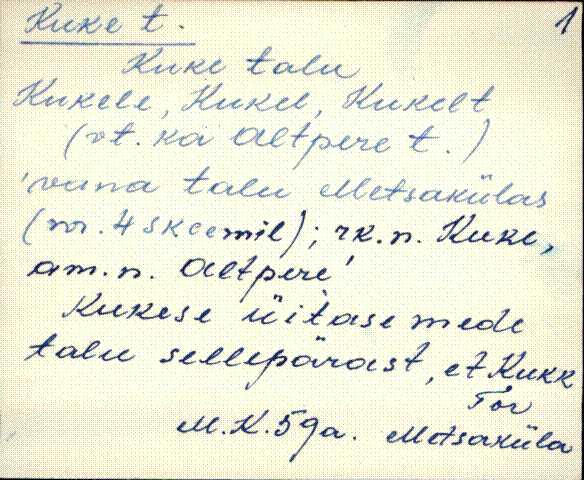 Kuke t.
1
Kuke talu
Kukele, Kukel, Kukelt
(vt. ka Altpere t.)
'vana talu Metsakülas
(nr. 4 skeemil); rk. n. Kuke,
am. n. Altpere'
Kukese üitasemede
talu sellepärast, et Kukk
Tor
M.K. 59a. Metsaküla